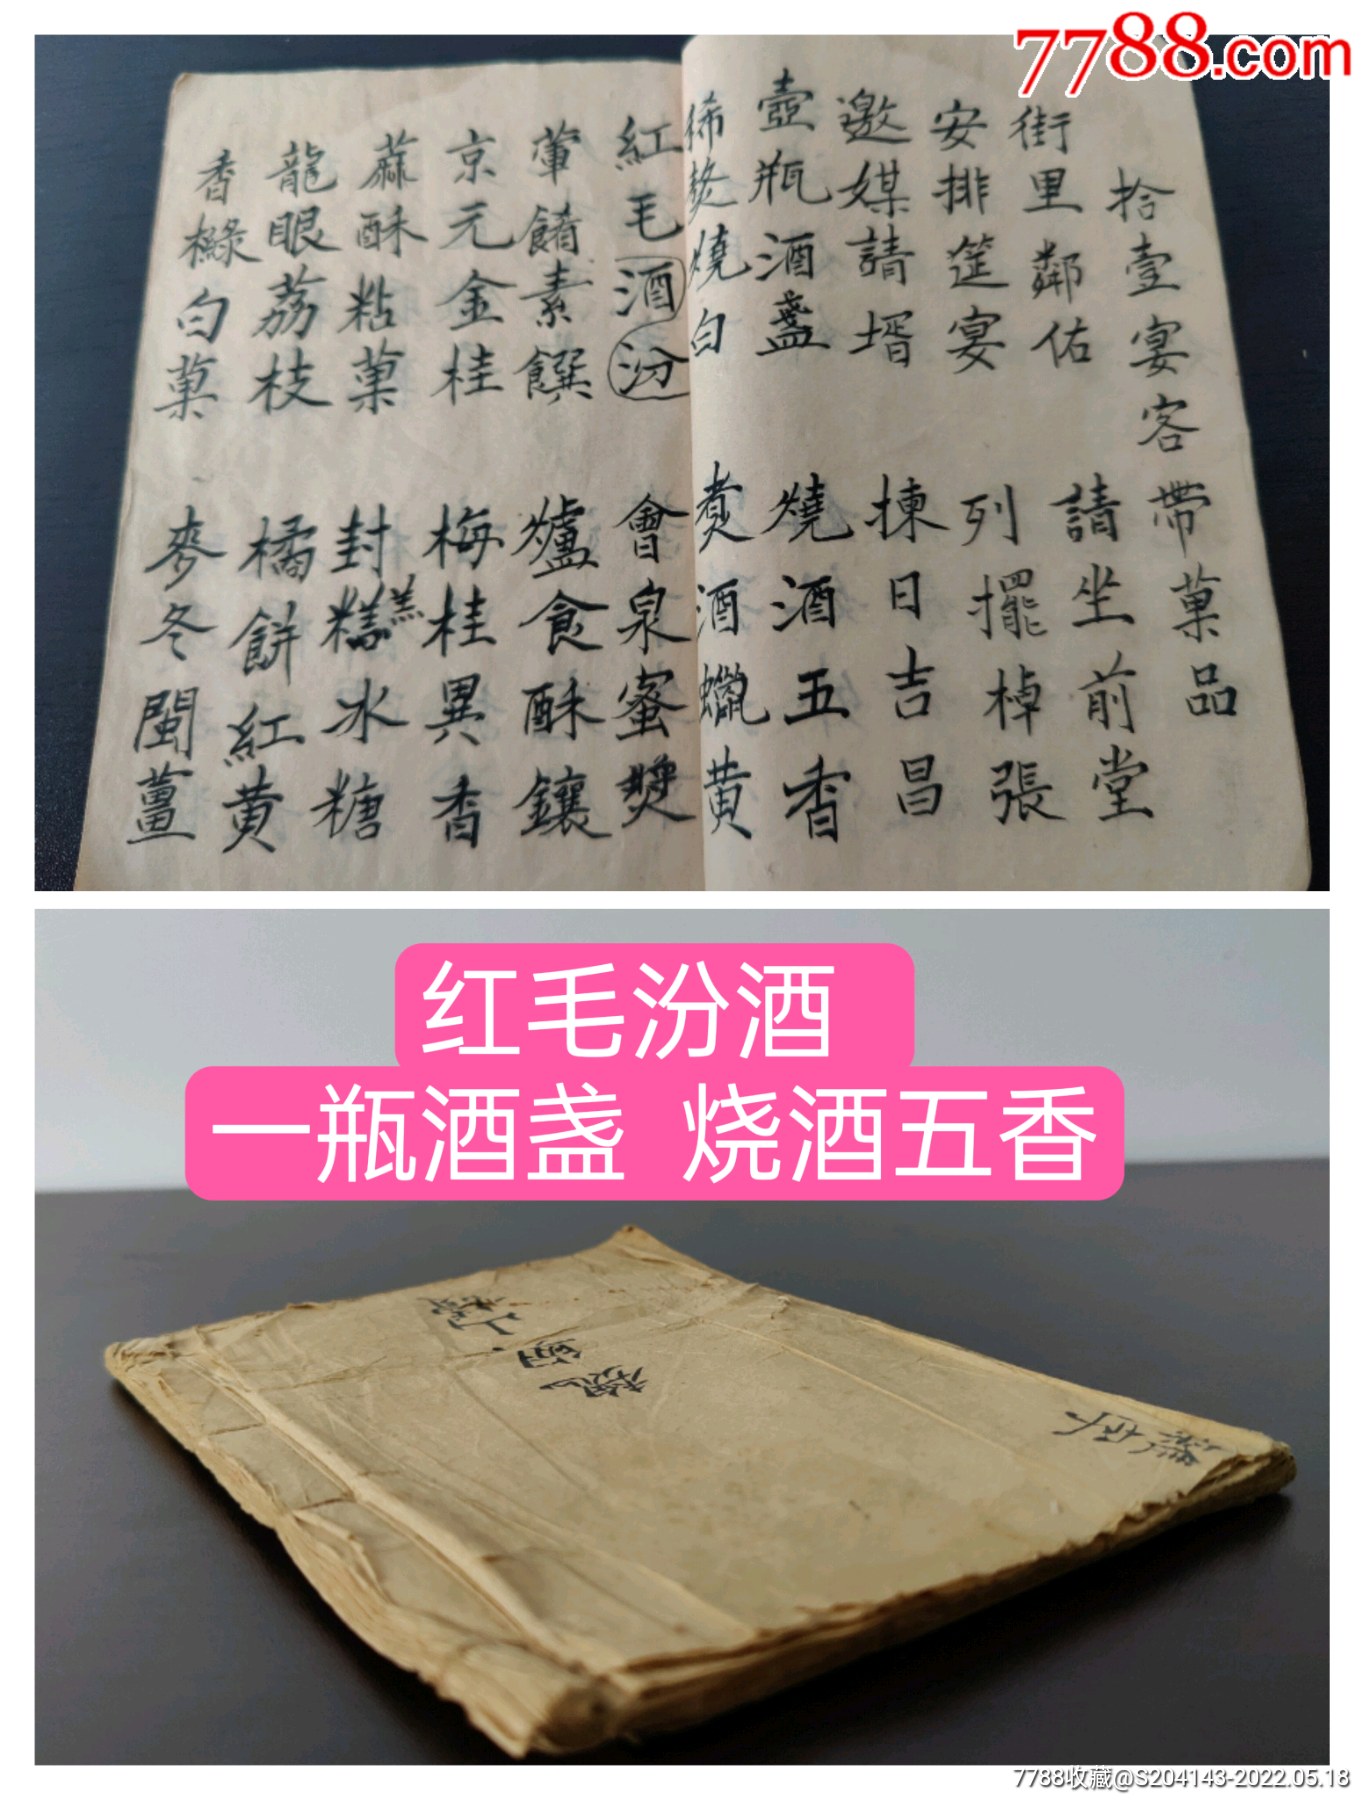 7788.com
拾壹宴客帶菓品
街里鄰佑 請坐前堂
安排筵宴 列擺棹張
邀媒請壻 揀日吉昌
壺瓶酒盞 燒酒五香
燒白 煑酒蠟黄
紅毛酒汾 會泉蜜
葷餚素饌 爐食酥鑲
京元金桂 梅桂異香
蔴酥粘菓 封糕羔冰糖
龍眼荔枝 橘餅紅黄
香櫞白菓 麥冬閩薑
红毛汾酒
一瓶酒盏 烧酒五香
7788收藏@S204143-2022.05.18